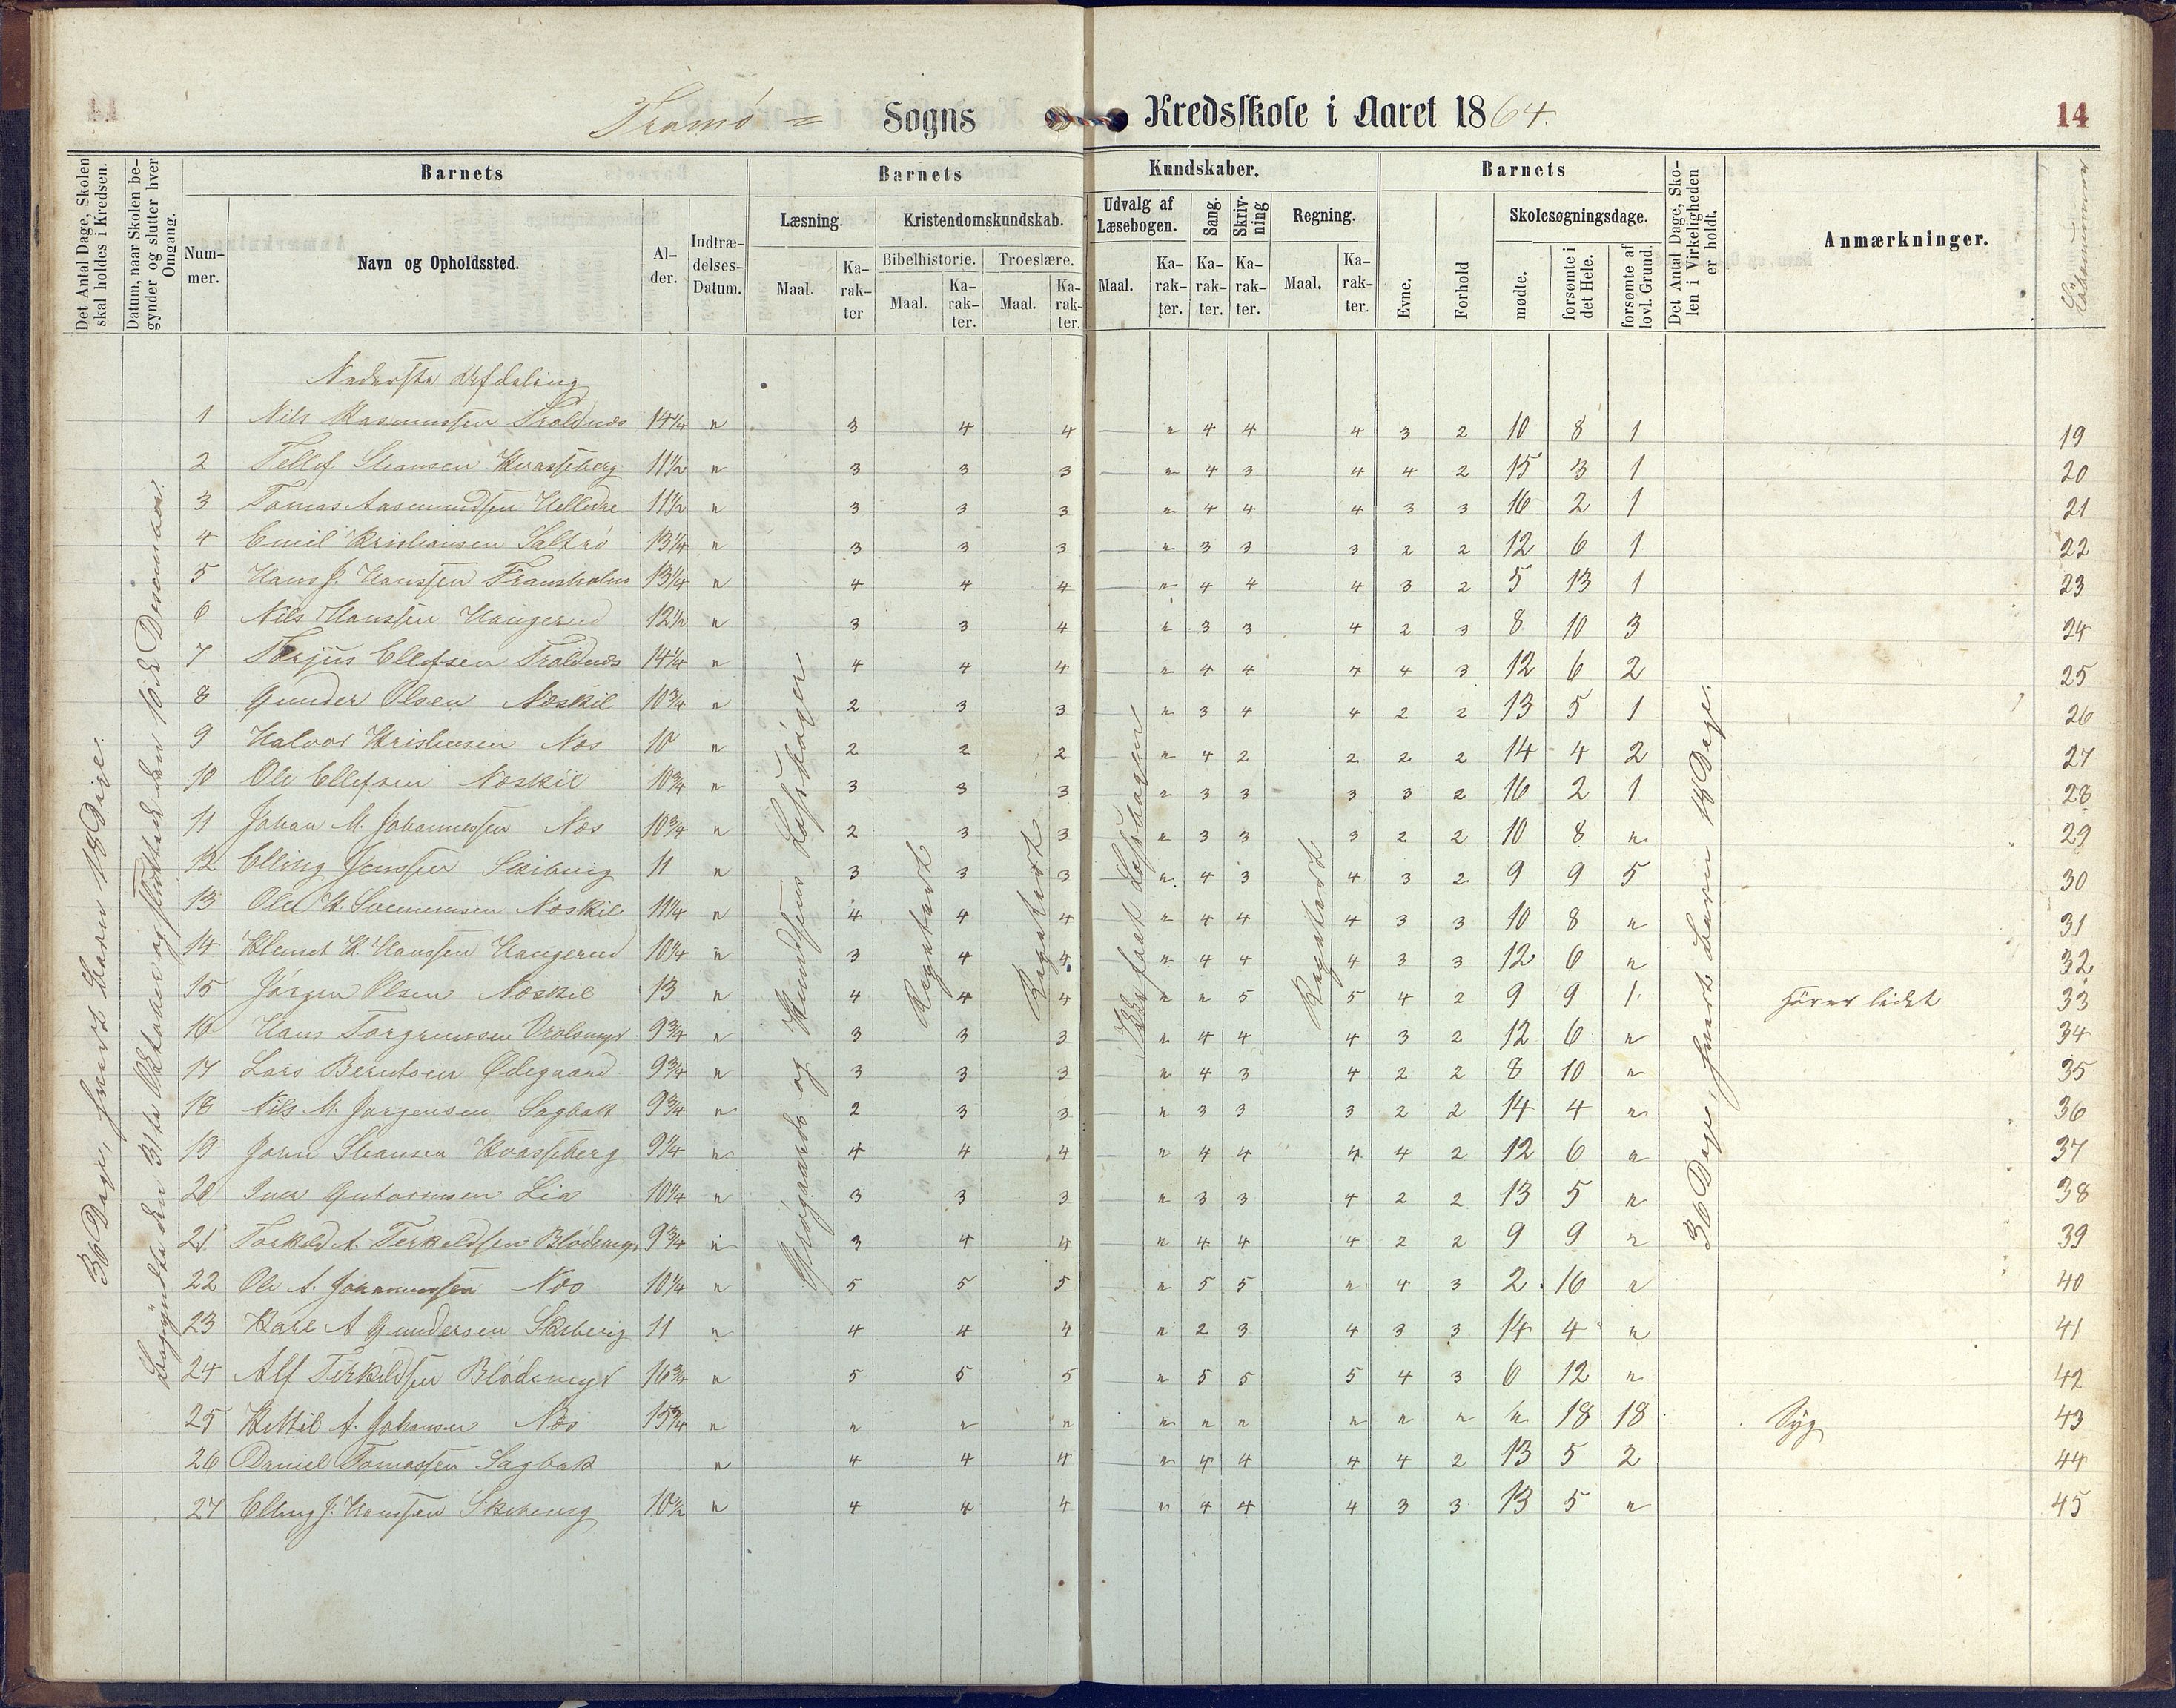 Tromø = Sogns Kredsskole i Aaret 1864.
14
Det Antal Dage, Skolen skal holdes i Kredsen.
Datum, naar Skolen begynder og slutter hver Omgang.
Barnets
Barnets Kundskaber.
Barnets
Det Antal Dage, Skolen i Virkeligheden er holdt.
Anmærkninger.
Nummer.
Navn og Opholdssted.
Alder.
Indtrædelses-Datum.
Læsning.
Kristendomskundskab.
Udvalg af Læsebogen.
Sang.
Skrivning
Regning.
Evne.
Forhold
Skolesøgningsdage.
Bibelhistorie.
Troeslære.
Maal.
Karakter
Maal.
Karakter.
Maal.
Karakter.
Maal.
Karakter.
Karakter.
Karakter.
Maal.
Karakter.
mødte.
forsømte i det Hele.
forsømte af lovl. Grund.
36 Dage, hvert Barn 18 Dage.
Begyndte den 31te Oktober og sluttede den 16de Desember.
Repetert
Repetert
Repetert
36 Dage, hvert Barn 18 Dage.
Nederste Afdeling
1 Nils Rasmussen Troldnes 14¼ " 3 4 4 " 4 4 4 3 2 10 8 1 19
2 Tellef Steansen Kvasseberg 11½ " 3 3 3 " 4 3 4 4 2 15 3 1 20
3 Tomas Aasmundsen Helledne 11½ " 3 3 3 " 4 4 4 3 3 16 2 1 21
4 Emil Kristiansen Saltrø 13¼ " 3 3 3 " 3 3 3 2 2 12 6 1 22
5 Hans J. Hanssen Fransholm 13¼ " 4 4 4 " 4 4 4 3 2 5 13 1 23
6 Nils Hanssen Haugerud 12½ " 3 3 4 " 3 3 4 2 3 8 10 3 24
7 Terjus Ellefsen Troldnes 14¼ " 4 4 4 " 4 4 4 4 3 12 6 2 25
8 Gunder Olsen Næskil 10¾ " 2 3 3 " 3 4 4 2 2 13 5 1 26
9 Halvor Kristensen Næs 10 " 2 2 2 " 4 2 2 2 2 14 4 2 27
10 Ole Ellefsen Næskil 10¾ " 3 3 3 " 3 3 3 3 2 16 2 1 28
11 Johan M. Johannessen Næs 10¾ " 2 3 3 " 3 3 3 2 2 10 8 " 29
12 Elling Jenssen Skibvig 11 " 3 3 3 " 4 3 4 3 2 9 9 5 30
13 Ole H. Svennensen Næskil 11¼ " 4 4 4 " 4 4 4 3 3 10 8 " 31
14 Klemet H. Hanssen Haugerud 10¼ " 3 4 4 " 4 4 4 3 3 12 6 " 32
15 Jørgen Olsen Næskil 13 " 4 4 4 " " 5 5 4 2 9 9 1 hører lidet 33
16 Hans Torgrimsen 9¾ " 3 3 3 " 4 4 4 3 2 12 6 " 34
17 Lars Berntsen Ødegaard 9¾ " 3 3 3 " 4 3 4 2 2 8 10 " 35
18 Nils M. Jørgensen Sagbak 9¾ " 2 3 3 " 3 3 3 2 2 14 4 " 36
19 Jørn Steansen Kvasseberg 9¼ " 4 4 4 " 4 4 4 4 2 12 6 " 37
20 Iver Gutormsen Lia 10¼ " 3 3 3 " 3 3 4 2 2 13 5 " 38
21 Torkeld A. Terkeldsen Blødemyr 9¾ " 3 4 4 " 4 4 4 2 2 9 9 " 39
22 Ole A. Johannessen Næs 10¼ " 5 5 5 " 5 5 " 4 3 2 16 " 40
23 Karl A Gundersen Skibvig 11 " 4 4 4 " 2 3 4 3 3 14 4 " 41
24 Alf Terkeldsen Blødemyr 16¾ " 5 5 5 " 5 5 5 4 3 6 12 " 42
25 Kittil A. Johansen Næs 15¾ " " " " " " " " " " " 18 18 Syg 43
26 Daniel Tomassen Sagbak " 4 4 4 " 4 4 4 4 2 13 5 2 44
27 Elling J. Hanssen Skibvig 10½ " 4 4 4 " 4 4 4 3 3 13 5 " 45